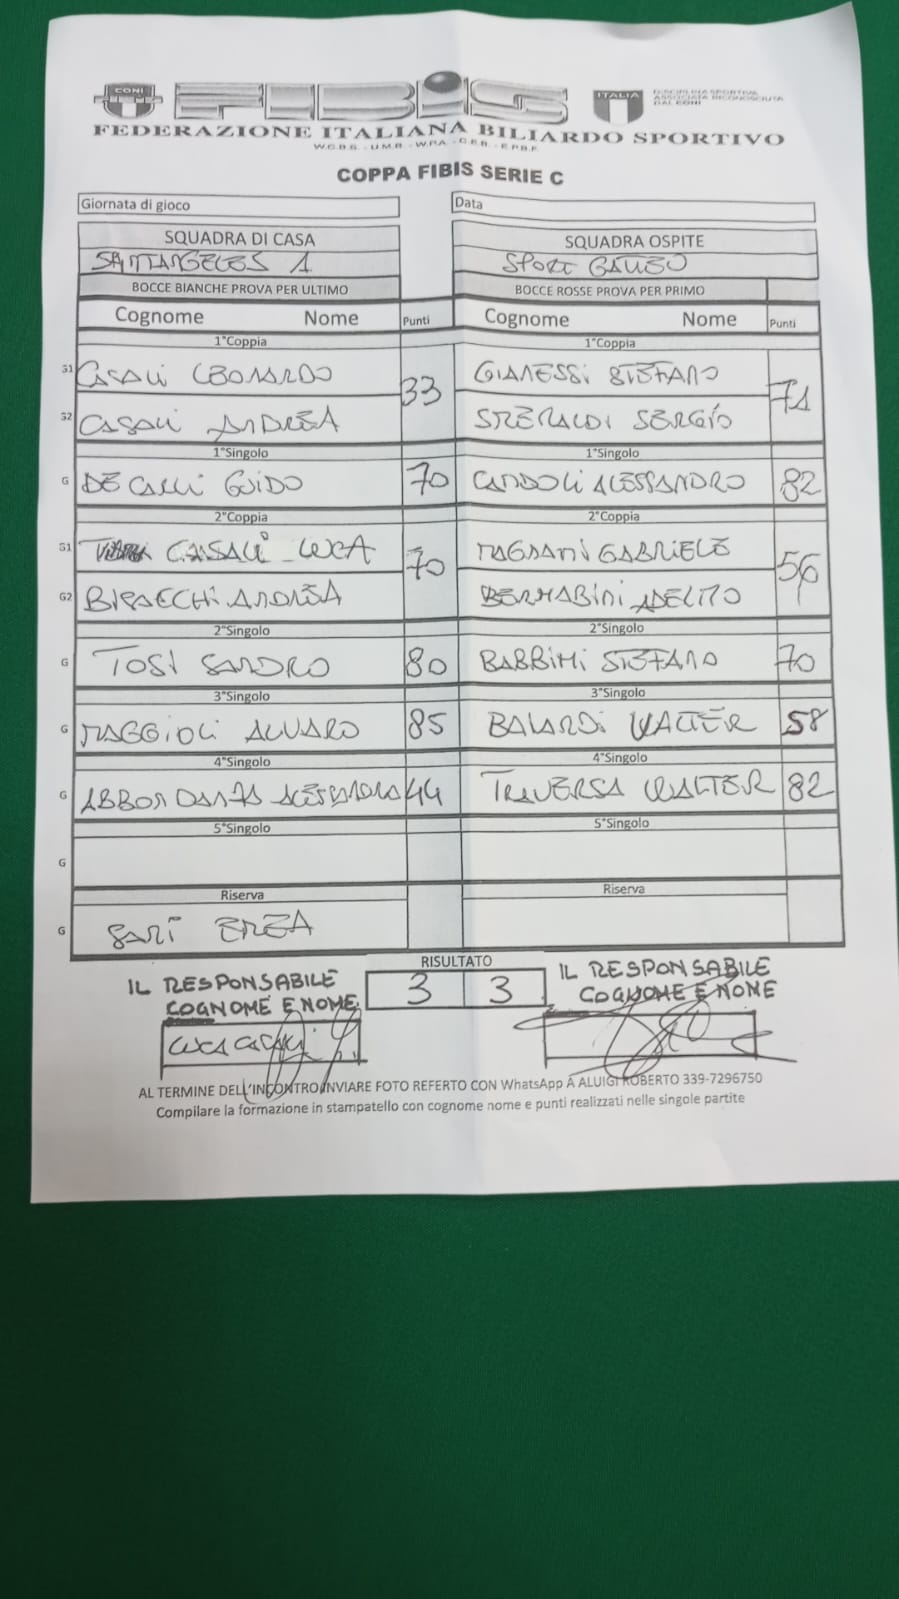 CONI
FIBIS
ITALIA
DISCIPLINA SPORTIVA
ASSOCIATA RICONOSCIUTA
DAL CONI
FEDERAZIONE ITALIANA BILIARDO SPORTIVO
W.C.B.S. - U.M.B. - W.P.A. - C.E.B. - E.P.B.F.
COPPA FIBIS SERIE C
Giornata di gioco Data
SQUADRA DI CASA SQUADRA OSPITE
SANTANGELES 1 SPORT
BOCCE BIANCHE PROVA PER ULTIMO BOCCE ROSSE PROVA PER PRIMO
Cognome Nome Punti Cognome Nome Punti
1°Coppia 1°Coppia
S1 CASALI LEONARDO 33 GIANESSI STEFANO 71
S2 CASALI ANDREA SERGIO
1°Singolo 1°Singolo
G DE CARLI GUIDO 70 CANDOLI ALESSANDRO 82
2°Coppia 2°Coppia
S1 CASALI LUCA 70 MAGNANI GABRIELE 56
G2 ANDREA BERNABINI ADELMO
2°Singolo 2°Singolo
G TOSI SANDRO 80 BABBINI STEFANO 70
3°Singolo 3°Singolo
G MAGGIOLI ALVARO 85 BALARDI WALTER 58
4°Singolo 4°Singolo
G ABBONDANZA ALESSANDRO 44 TRAVERSA WALTER 82
5°Singolo 5°Singolo
G
Riserva Riserva
G SARI ENEA
RISULTATO
3 3
IL RESPONSABILE IL RESPONSABILE
COGNOME E NOME COGNOME E NOME
LUCA CASALI
AL TERMINE DELL'INCONTRO INVIARE FOTO REFERTO CON WhatsApp A ALUIGI ROBERTO 339-7296750
Compilare la formazione in stampatello con cognome nome e punti realizzati nelle singole partite